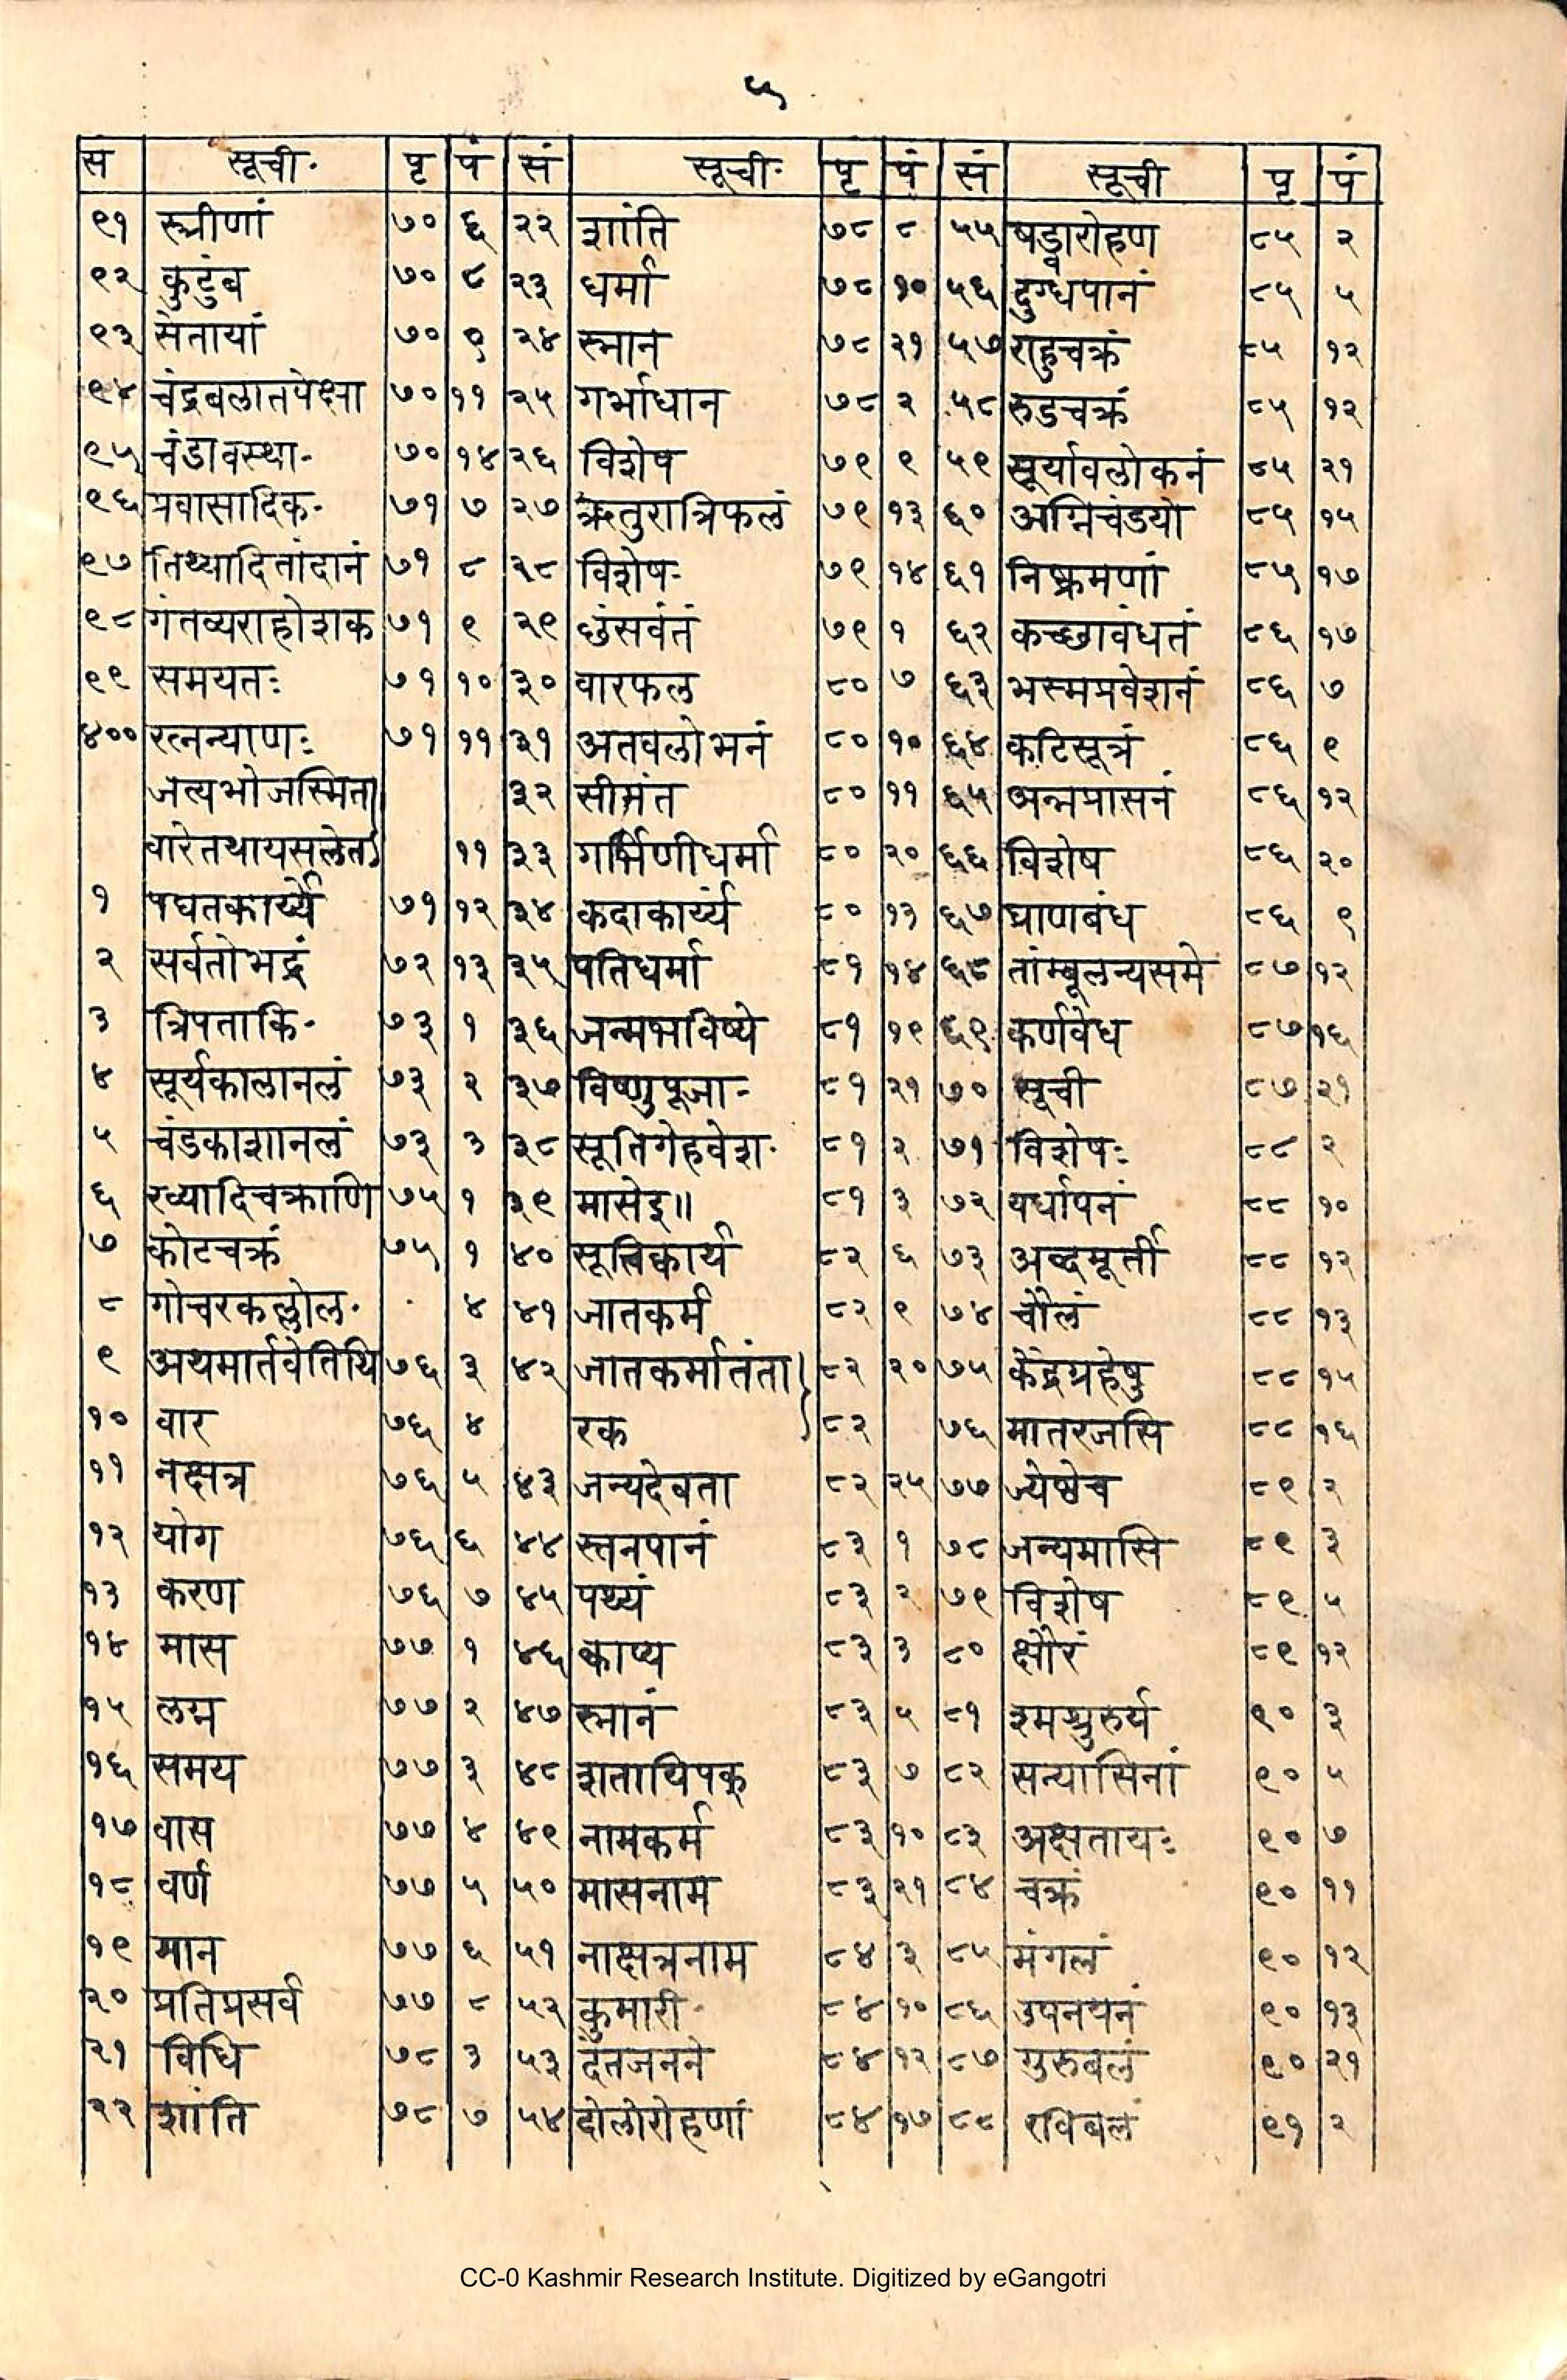 ५
स सूची. पृ पं सं सूची. पृ पं सं सूची पृ पं
९१ स्त्रीणां ७० ६ २२ शांति ७८ ८ ५५ षड्वारोहण ८५ २
९२ कुटुंब ७० ८ २३ धर्मा ७८ १० ५६ दुग्धपानं ८५ ५
९३ सेतायां ७० ९ २४ स्नान ७८ २१ ५७ राहुचक्रं ८५ १२
९४ चंद्रबलातपेक्षा ७० ११ २५ गर्भाधान ७८ २ ५८ रुडचक्रं ८५ १२
९५ चंडावस्था- ७० १४ २६ विशेष ७९ ९ ५९ सूर्यावलोकनं ८५ २१
९६ प्रवासादिक- ७१ ७ २७ ऋतुरात्रिफलं ७९ १३ ६० अग्निचंडयो ८५ १५
९७ तिथ्यादितांदानं ७१ ८ २८ विशेषः ७९ १४ ६१ निष्क्रमणां ८५ १७
९८ गंतव्यराहोशक ७१ ९ २९ छंसवंतं ७९ १ ६२ कच्छावंधतं ८६ १७
९९ समयतः ७१ १० ३० वारफल ८० ७ ६३ भस्मप्रवेशनं ८६ ७
४०० रत्नन्याणः ७१ ११ ३१ अतवलोभनं ८० १० ६४ कटिसूत्रं ८६ ९
जेत्यभोजस्मिता ३२ सीमंत ८० ११ ६५ अन्नप्रासनं ८६ १२
वारेतथायसलेत ११ ३३ गर्भिणीधर्मा ८० २० ६६ विशेष ८६ २०
१ पघतकार्य्ये ७१ १२ ३४ कदाकार्य्यं ८० १३ ६७ प्राणबंध ८६ ९
२ सर्वतोभद्रं ७२ १३ ३५ पतिधर्मा ८१ १४ ६८ तांम्बूलन्यसमे ८७ १२
३ त्रिपताकि- ७३ १ ३६ जन्मभविष्ये ८१ १९ ६९ कर्णवेध ८७ १६
४ सूर्यकालानलं ७३ २ ३७ विष्णुपूजा- ८१ २१ ७० सूची ८७ २१
५ चंडकाशानलं ७३ ३ ३८ सूतिगेहवेश. ८१ २ ७१ विशेषः ८८ २
६ रव्यादिचक्राणि ७५ १ ३९ मासेइ॥ ८१ ३ ७२ यर्धापनं ८८ १०
७ कोटचक्रं ७५ १ ४० सूतिकार्य ८२ ६ ७३ अब्दमूर्ती ८८ १२
८ गोचरकल्लोल. ४ ४१ जातकर्म ८२ ९ ७४ चौलं ८८ १३
९ अथमार्तवेतिथि ७६ ३ ४२ जातकर्मातंता ८२ २० ७५ केंद्रग्रहेषु ८८ १५
१० वार ७६ ४ रक ८२ ७६ मातरजसि ८८ १६
११ नक्षत्र ७६ ५ ४३ जन्यदेवता ८२ २५ ७७ ज्येष्ठेच ८९ २
१२ योग ७६ ६ ४४ स्तनपानं ८३ १ ७८ जन्यमासि ८९ ३
१३ करण ७६ ७ ४५ पथ्यं ८३ २ ७९ विशेष ८९ ५
१४ मास ७७ १ ४६ काप्य ८३ ३ ८० क्षौरं ८९ १२
१५ लग्न ७७ २ ४७ स्नानं ८३ ५ ८१ श्मश्रुरुर्य ९० ३
१६ समय ७७ ३ ४८ शतायिपकृ ८३ ७ ८२ सन्यासिनां ९० ५
१७ वास ७७ ४ ४९ नामकर्म ८३ १० ८३ अक्षतायः ९० ७
१८ वर्ण ७७ ५ ५० मासनाम ८३ २१ ८४ चक्रं ९० ११
१९ मान ७७ ६ ५१ नाक्षत्रनाम ८४ ३ ८५ मंगलं ९० १२
२० प्रतिप्रसर्व ७७ ८ ५२ कुमारी- ८४ १० ८६ उपनयनं ९० १३
२१ विधि ७८ ३ ५३ दंतजनने ८४ १२ ८७ गुरुबलं ९० २१
२२ शांति ७८ ७ ५४ दोलोरोहणां ८४ १७ ८८ रविबलं ९१ २
CC-0 Kashmir Research Institute. Digitized by eGangotri